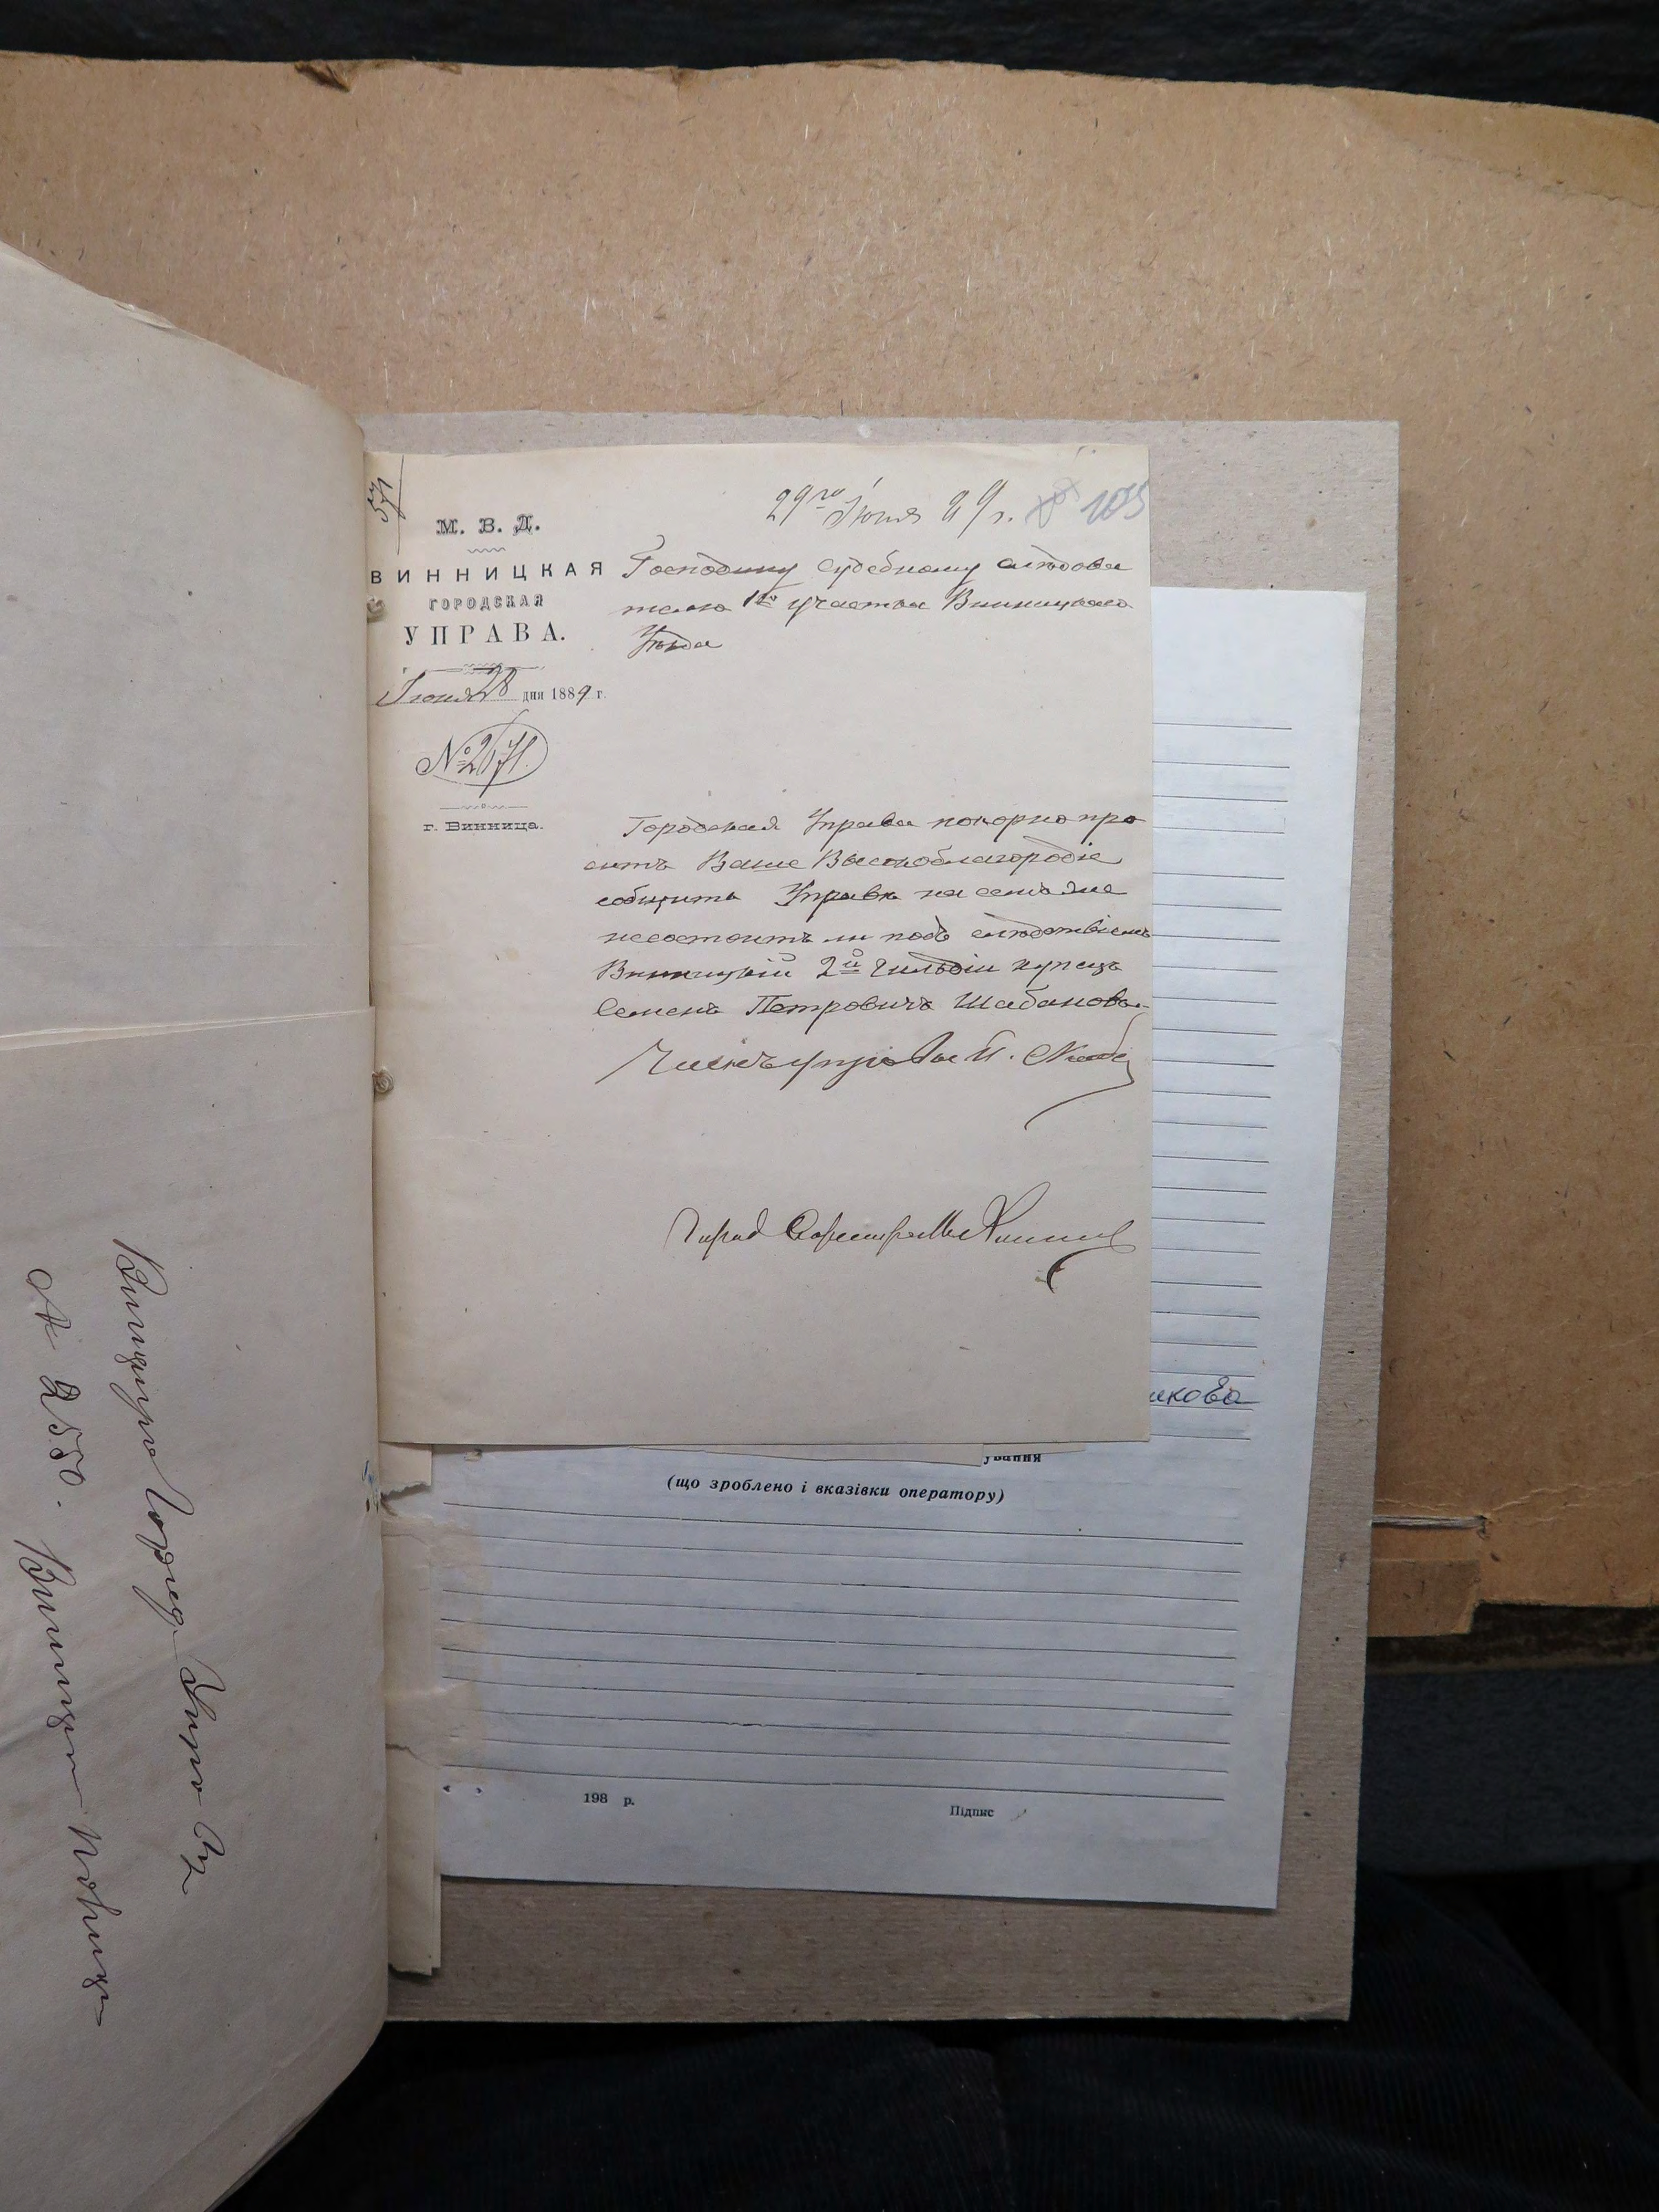 29го Іюня 89 г. 105
М. В. Д.
ВИННИЦКАЯ
ГОРОДСКАЯ
УПРАВА.
Іюня 28 дня 1889 г.
№ 2671.
г. Винница.
Господину Судебному слѣдова
телю 1го участка Винницкаго
Уѣзда
Городская Управа покорно про
ситъ Ваше Высокоблагородіе
сообщить Управѣ на семъ же
несостоитъ ли подъ слѣдствіемъ
Винницкій 2й гильдіи купецъ
Семенъ Петровичъ Шабановъ.
Членъ управы
Город Секретарь
икова
ування
(що зроблено і вказівки оператору)
198 р.
Підпис
№ 2550.